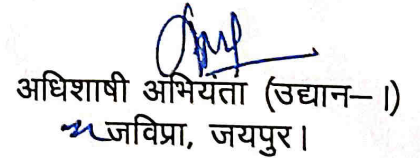 अधिशाषी अभियंता (उद्यान–।)
जविप्रा, जयपुर।